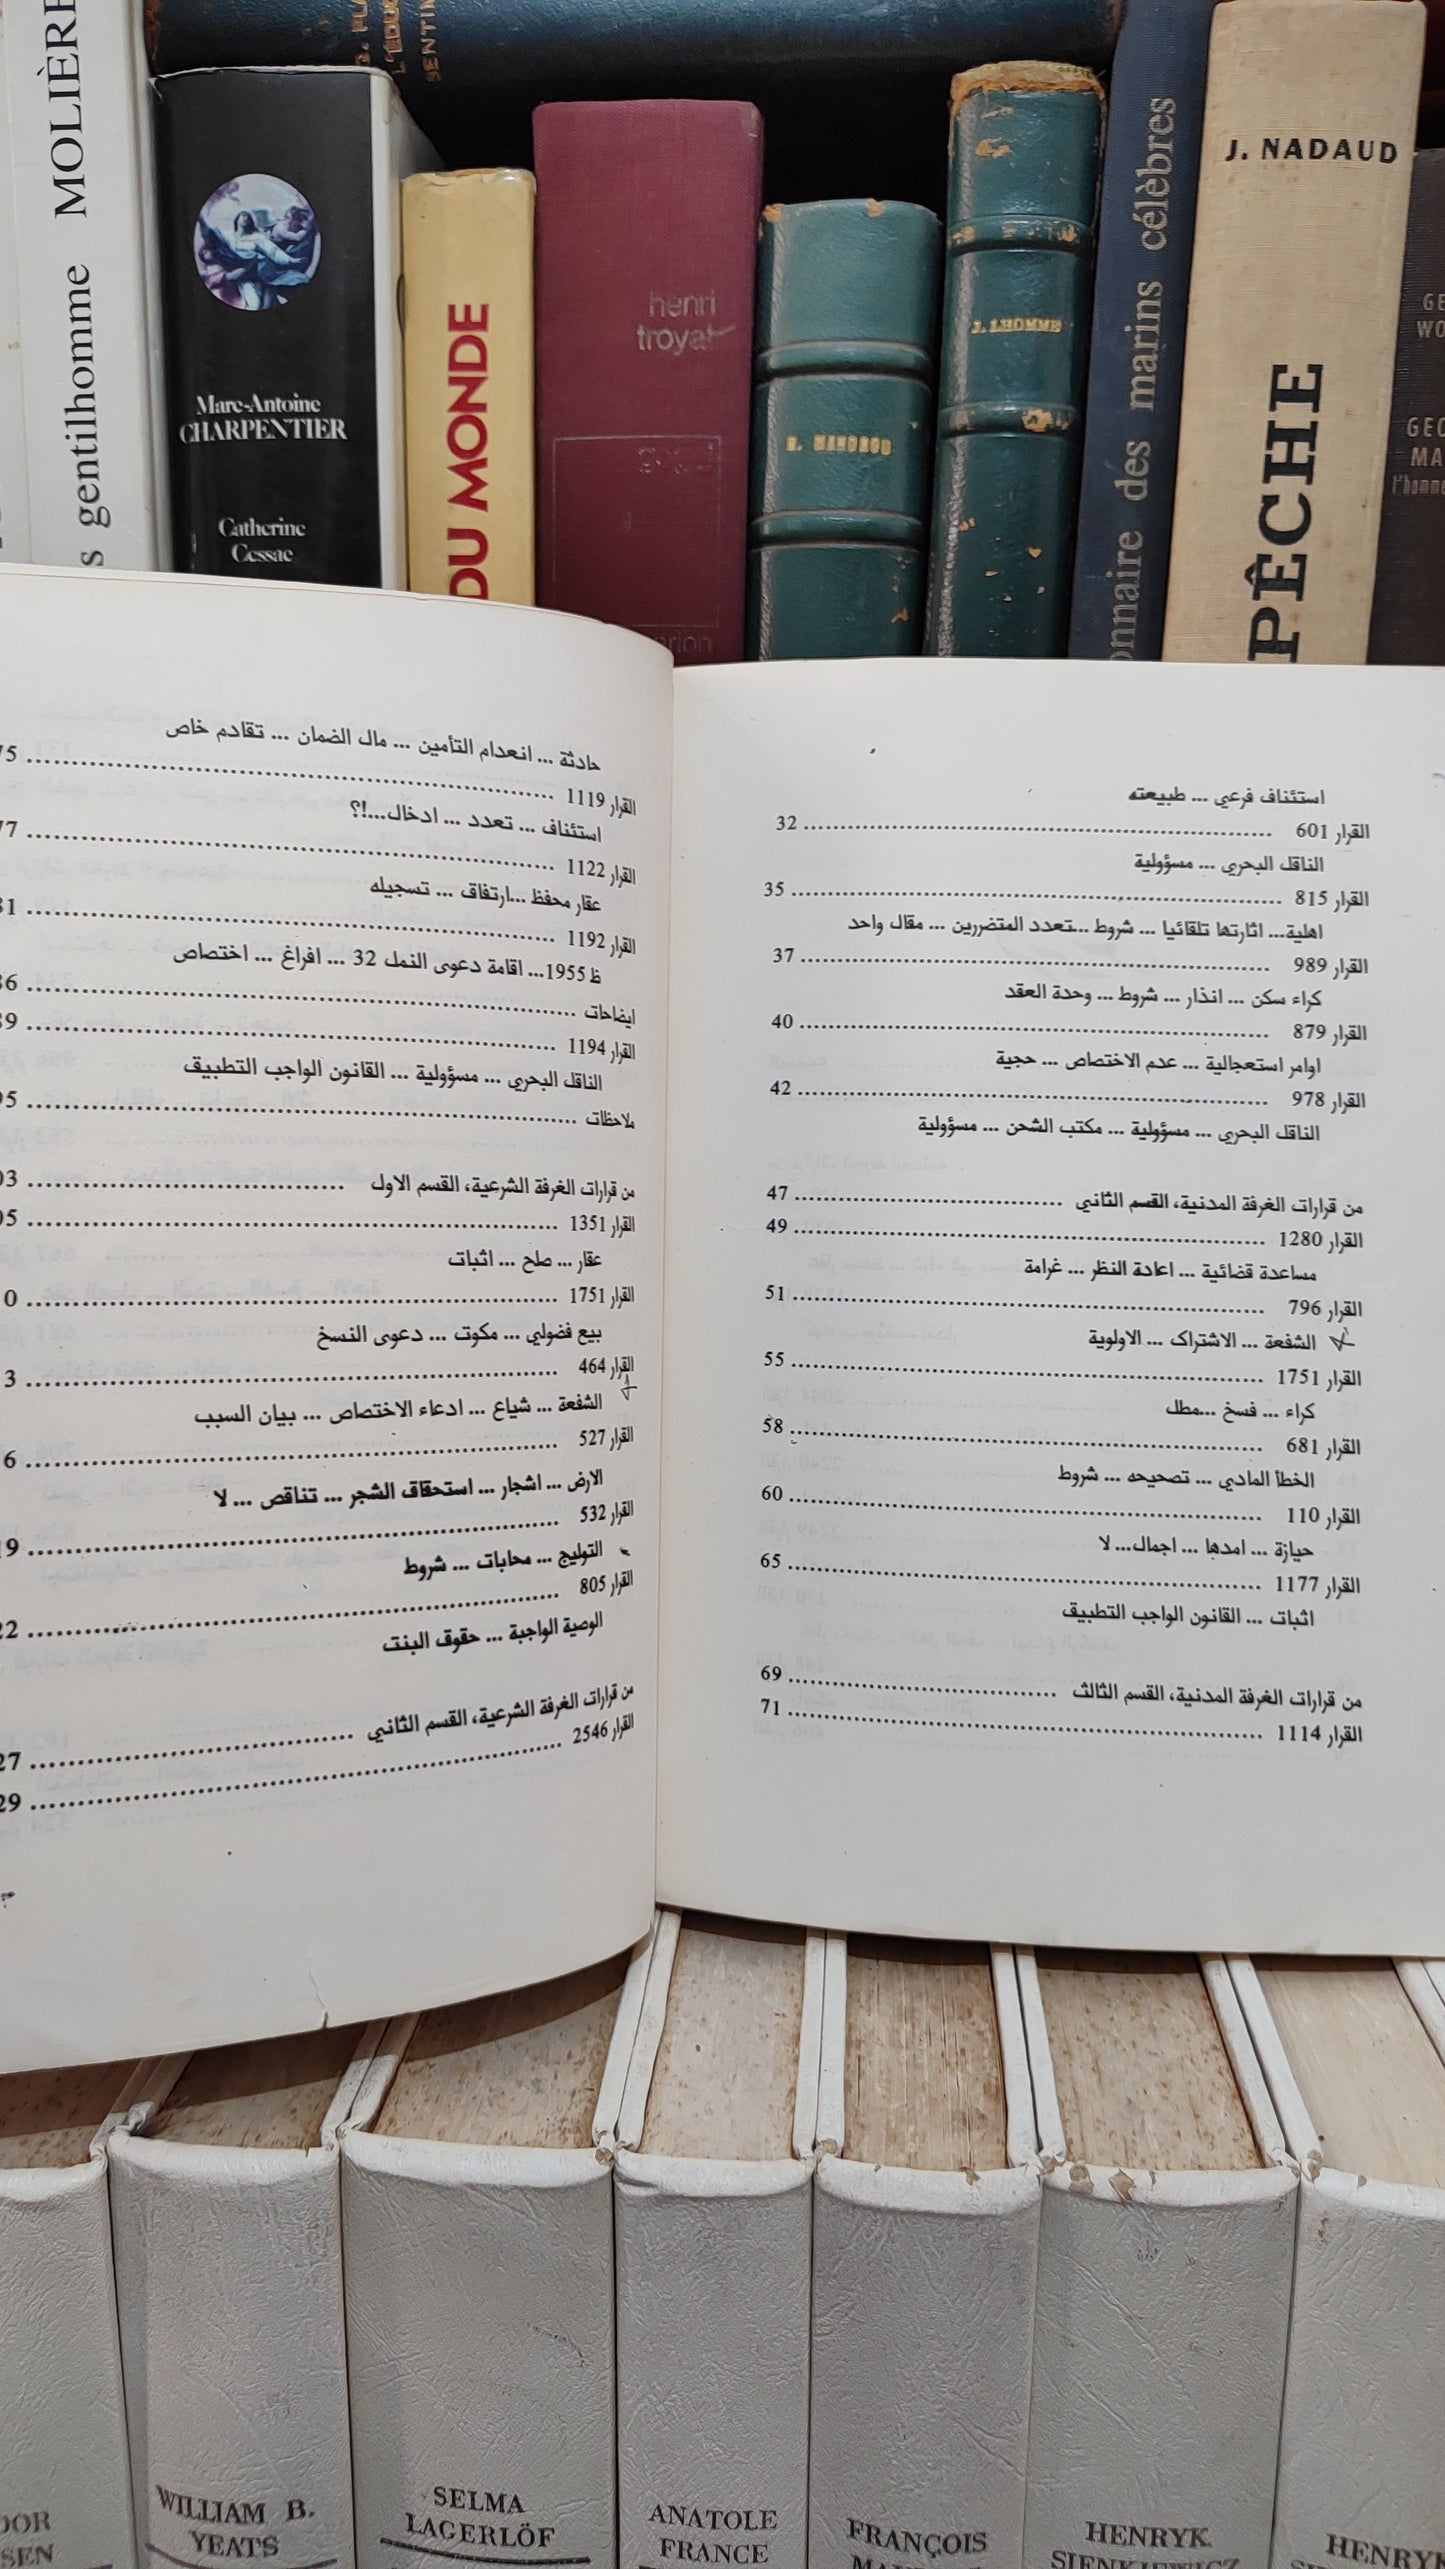 MOLIÈRE
s gentilhomme
L'ÉDUC
SENTIM
Marc-Antoine
CHARPENTIER
Catherine
Cessac
DU MONDE
henri
troyat
J. LHOMME
onnaire des marins célèbres
J. NADAUD
PÊCHE
GE
WO
GEO
MA
l'homme
استئناف فرعي ... طبيعته
القرار 601 ........ 32
الناقل البحري ... مسؤولية
القرار 815 ........ 35
اهلية... اثارتها تلقائيا ... شروط ...تعدد المتضررين ... مقال واحد
القرار 989 ........ 37
كراء سكن ... انذار ... شروط ... وحدة العقد
القرار 879 ........ 40
اوامر استعجالية ... عدم الاختصاص ... حجية
القرار 978 ........ 42
الناقل البحري ... مسؤولية ... مكتب الشحن ... مسؤولية
من قرارات الغرفة المدنية، القسم الثاني ........ 47
القرار 1280 ........ 49
مساعدة قضائية ... اعادة النظر ... غرامة
القرار 796 ........ 51
الشفعة ... الاشتراك ... الاولوية
القرار 1751 ........ 55
كراء ... فسخ ...مطل
القرار 681 ........ 58
الخطأ المادي ... تصحيحه ... شروط
القرار 110 ........ 60
حيازة ... امدها ... اجمال... لا
القرار 1177 ........ 65
اثبات ... القانون الواجب التطبيق
من قرارات الغرفة المدنية، القسم الثالث ........ 69
القرار 1114 ........ 71
حادثة ... انعدام التأمين ... مال الضمان ... تقادم خاص
القرار 1119 ........ 75
استئناف ... تعدد ... ادخال...!؟
القرار 1122 ........ 77
عقار محفظ ...ارتفاق ... تسجيله
القرار 1192 ........ 81
ظ 1955... اقامة دعوى النمل 32 ... افراغ ... اختصاص
ايضاحات ........ 86
القرار 1194 ........ 89
الناقل البحري ... مسؤولية ... القانون الواجب التطبيق
ملاحظات ........ 95
من قرارات الغرفة الشرعية، القسم الاول ........ 03
القرار 1351 ........ 05
عقار ... صلح ... اثبات
القرار 1751 ........ 0
بيع فضولي ... مكوت ... دعوى النسخ
القرار 464 ........ 3
الشفعة ... شياع ... ادعاء الاختصاص ... بيان السبب
القرار 527 ........ 6
الارض ... اشجار ... استحقاق الشجر ... تناقص ... لا
القرار 532 ........ 19
التوليج ... محابات ... شروط
القرار 805 ........ 22
الوصية الواجبة ... حقوق البنت
من قرارات الغرفة الشرعية، القسم الثاني ........ 27
القرار 2546 ........ 29
DOR
SEN
WILLIAM B.
YEATS
SELMA
LAGERLÖF
ANATOLE
FRANCE
FRANÇOIS
HENRYK
SIENKIEWICZ
HENRYK